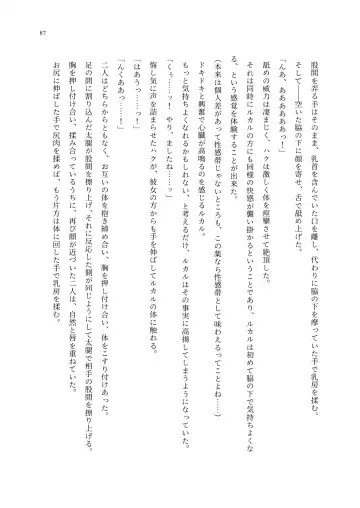 87
股間を弄る手はそのまま、乳首を含んでいた口を離し、代わりに脇の下を摩っていた手で乳房を揉む。
そして――空いた脇の下に顔を寄せ、舌で舐め上げた。
「んあ、あああああっ！」
舐めの威力は凄まじく、ハクは激しく体を痙攣させて絶頂した。
それは同時にルカルの方にも同様の快感が襲い掛かるということであり、ルカルは初めて脇の下で気持ちよくな
る、という感覚を体験することが出来た。
（本来は個人差があって性感帯じゃないところも、この薬なら性感帯として味わえるってことよね……）
ドキドキと興奮で心臓が高鳴るのを感じるルカル。
もっと気持ちよくなれるかもしれない、と考えるだけ、ルカルはその事実に高揚してしまうようになっていた。
「くぅ……っ！　やり、ましたね……っ」
「はあうっ……っ！」
悔し気に声を詰まらせたハクが、彼女の方からも手を伸ばしてルカルの体に触れる。
「んくああっ……っ！」
二人はどちらからともなく、お互いの体を抱き締め合い、胸を押し付け合い、体をこすり付けあった。
足の間に割り込んだ太腿が股間を擦り上げ、それに反応した側が同じようにして太腿で相手の股間を擦り上げる。
胸を押し付け、揉み合っているうちに、再び顔が近づいた二人は、自然と唇を重ねていた。
お尻に伸ばした手で尻肉を揉めば、もう片方は体に回した手で乳房を揉む。